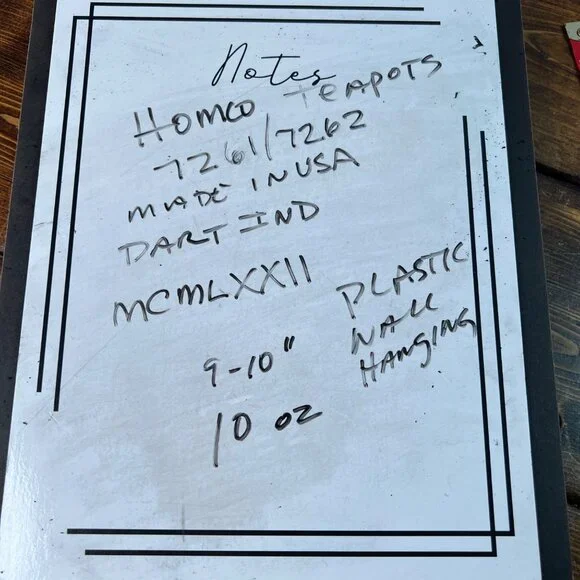 Notes
HOMCO TEAPOTS
7261/7262
MADE IN USA
DART IND
MCMLXXII
PLASTIC
WALL
HANGING
9-10"
10 oz